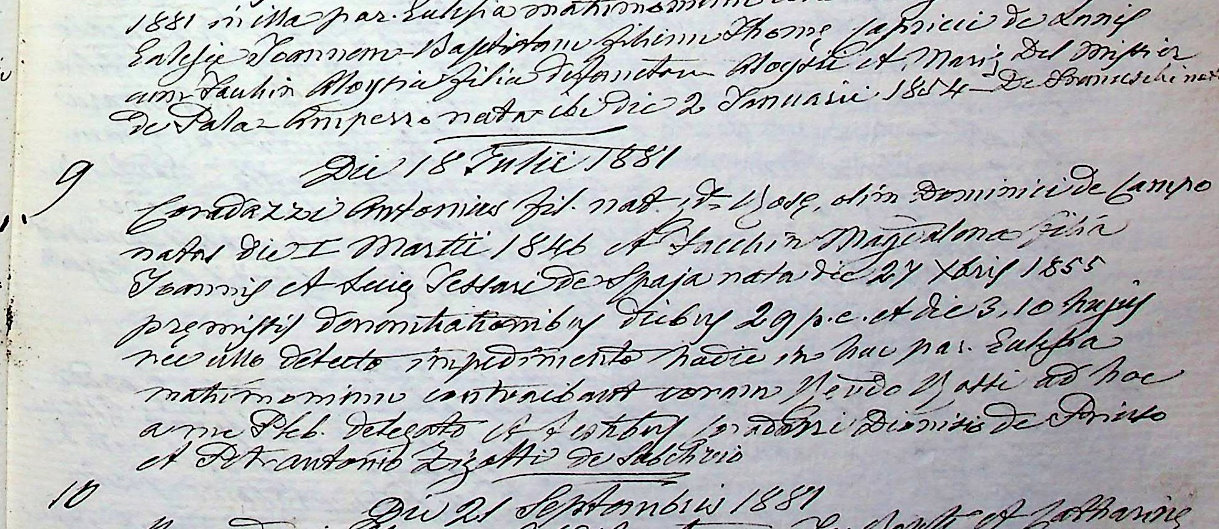 1881 in illa par. Eccłsia matrimonium
Eccłsiæ Joannem Baptistam filium Thomę de
cum Facchin Aloysia filia defunctor. Aloysii et Marię Del Missier
de Pala-Campesso nata ibi die 2 Januarii 1854 De Franceschi
9
Die 18 Julii 1881
Coradazzi Antonius fil. nat. Rosę, olim Dominici de Campo
natus die I Martii 1846 et Facchin Magdalena filia
Joannis et Lucię Tessari de Spessa nata die 27 Xbris 1855
pręmissis denontiationibus diebus 29 p.e. et die 3, 10 hujus
nec ullo detecto impedimento hodie in hac par. Ecclesia
matrimonium contraebant coram Revdo Ratti ad hoc
a me Pleb. delegato et testibus Coradazzi Dionisio de
et Petrantonio Zigotti de
10
Die 21 Septembris 1881
et Catharinę